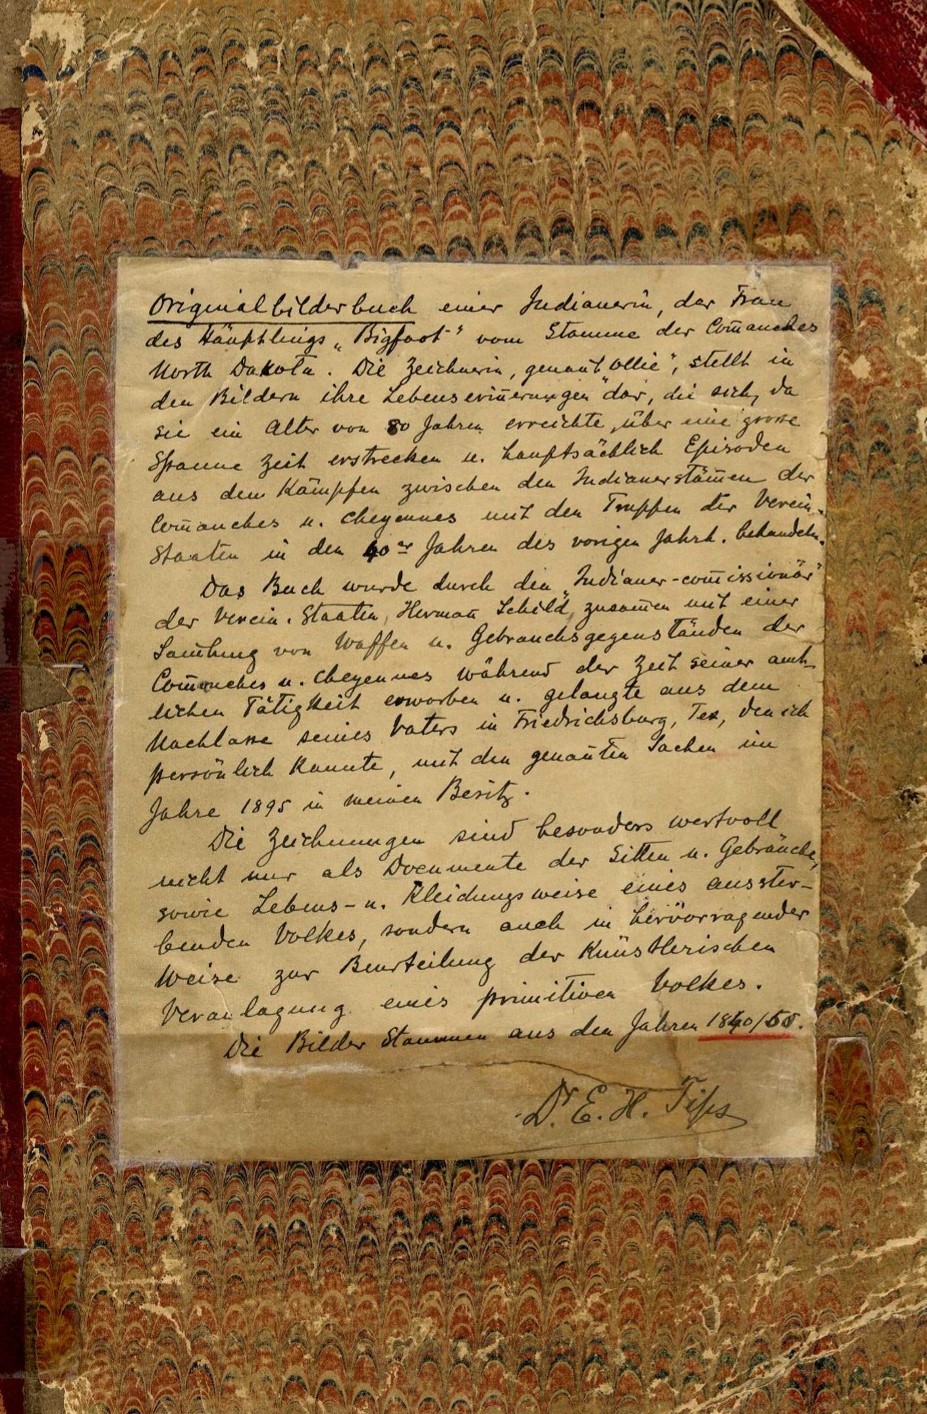 Originalbilderbuch einer Indianerin, der Frau
des Häuptlings „Bigfoot" vom Stamme der Com̄anches
North Dakota. Die Zeichnerin, genan̄t „Ollie", stellt in
den Bildern ihre Lebenserin̄erungen dar, die sich, da
sie ein Alter von 80 Jahren erreichte, über eine grosse
Spanne Zeit erstrecken u. hauptsächlich Episoden
aus den Kämpfen zwischen den Indianerstäm̄en der
Com̄anches u. Cheyennes mit den Truppen der Verein.
Staaten in den 40er Jahren des vorigen Jahrh. behandeln.
Das Buch wurde durch den „Indianer-com̄issionär"
der Verein. Staaten, Herman̄ Schild, zusam̄en mit einer
Sam̄lung von Waffen u. Gebrauchsgegenständen der
Com̄anches u. Cheyennes während der Zeit seiner amt-
lichen Tätigkeit erworben u. gelangte aus dem
Nachlasse seines Vaters in Friedrichsburg, Tex, den ich
persönlich kannte, mit den genan̄ten Sachen im
Jahre 1895 in meinen Besitz.
Die Zeichnungen sind besonders wertvoll
nicht nur als Documente der Sitten u. Gebräuche,
sowie Lebens- u. Kleidungsweise einesausster-
benden Volkes, sondern auch in hervorragender
Weise zur Beurteilung der künstlerischen
Veranlagung eines primitiven Volkes.
Die Bilder stammen aus den Jahren
Dr. E. H. Tips